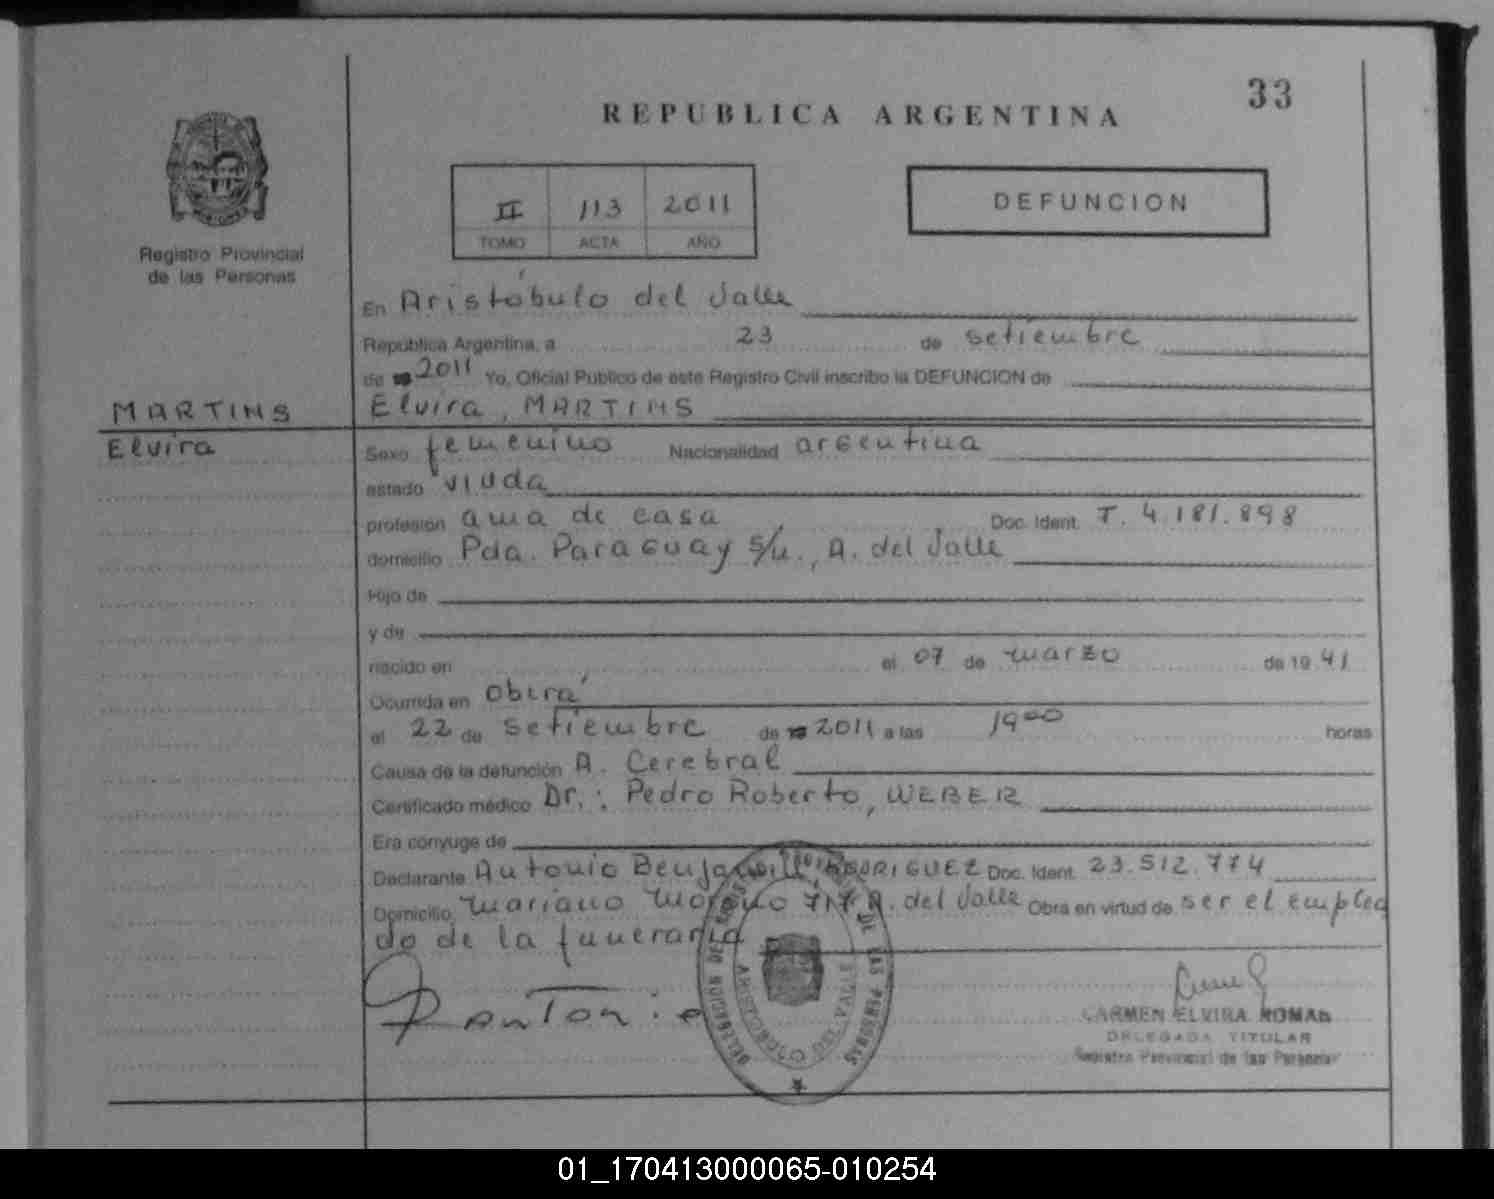 33
REPUBLICA ARGENTINA
II 113 2011
TOMO ACTA AÑO
DEFUNCION
Registro Provincial
de las Personas
En Aristóbulo del Valle
República Argentina, a 23 de setiembre
de 2011 Yo, Oficial Público de este Registro Civil inscribo la DEFUNCION de
MARTINS
Elvira, MARTINS
Elvira
Sexo femenino Nacionalidad argentina
estado viuda
profesión ama de casa Doc. Ident. T. 4.181.898
domicilio Pda. Paraguay s/n., A. del Valle
Hijo de
y de
nacido en el 07 de marzo de 19 41
Ocurrida en Oberá
el 22 de setiembre de 2011 a las 19 00 horas
Causa de la defunción A. Cerebral
Certificado médico Dr.: Pedro Roberto, WEBER
Era cónyuge de
Declarante Antonio Benjamín RODRIGUEZ Doc. Ident. 23.512.774
Domicilio Mariano Moreno 717 A. del Valle Obra en virtud de ser el emplea
do de la funeraria
Antonio
DELEGACION DE LAS PERSONAS
ARISTOBULO DEL VALLE
CARMEN ELVIRA ROMAN
DELEGADA TITULAR
Registro Provincial de las Personas
01_170413000065-010254